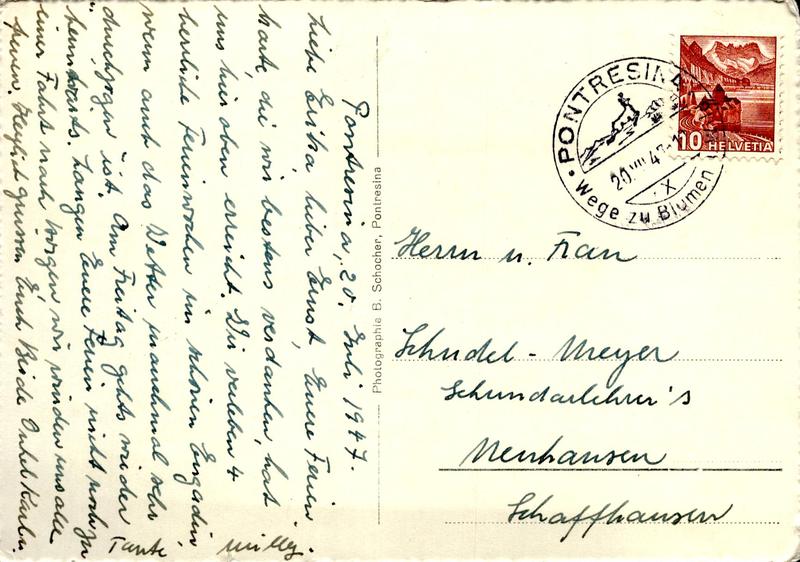 Pontresina, 20. Juli 1947.
Liebe Erika, lieber Ernst, Euere Ferien
karte, die wir bestens verdanken, hat
uns hier oben erreicht. Wir verleben 4
herrliche Ferienwochen im schönen Engadin
wenn auch das Wetter manchmal sehr
durchzogen ist. Am Freitag gehts wieder
heimwärts. Langen Euere Ferien nicht noch zu
einer Fahrt nach Horgen wir würden uns alle
freuen. Herzlich grüssen Euch Beide Onkel Karl u.
Tante Milly.
Photographie B. Schocher, Pontresina
PONTRESINA
20.VII.47-11
X
Wege zu Blumen
10 HELVETIA
Herrn u. Frau
Schudel-Meyer
Sekundarlehrer's
Neuhausen
Schaffhausen